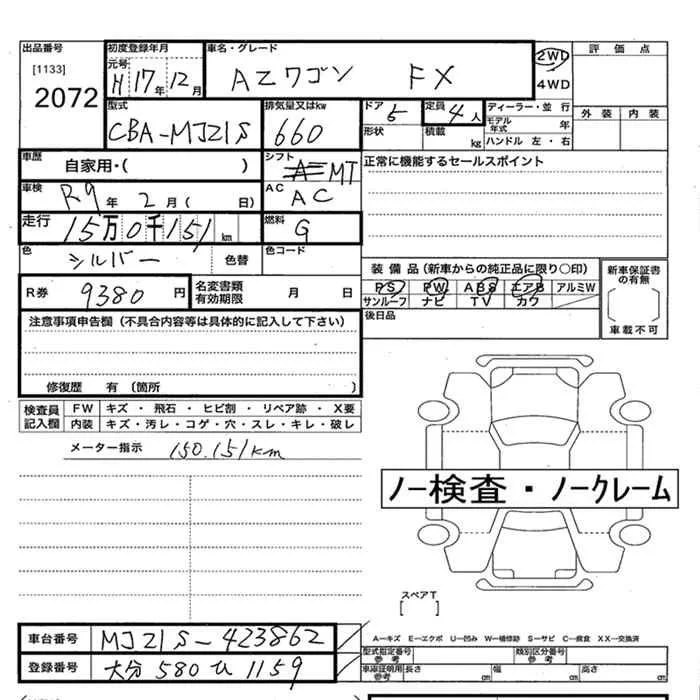 出品番号 初度登録年月 車名・グレード 評価点
[1133] 元号 H17年12月 AZワゴン FX 2WD
2072 4WD
型式 排気量又はkw ドア 5 定員 4人 ディーラー・並行 外装 内装
CBA-MJ21S 660 形状 積載 kg モデル年式 年
ハンドル 左・右
車歴 自家用・( ) シフト A MT 正常に機能するセールスポイント
車検 R9年2月( 日) AC AC
走行 15万0千151km 燃料 G
色 シルバー 色替 色コード
装備品(新車からの純正品に限り○印) 新車保証書の有無
R券 9380円 名変書類有効期限 月 日 PS PW ABS エアB アルミW
サンルーフ ナビ TV カワ 車載不可
注意事項申告欄(不具合内容等は具体的に記入して下さい) 後日品
修復歴 有(箇所 )
検査員記入欄 FW キズ・飛石・ヒビ割・リペア跡・X要
内装 キズ・汚レ・コゲ・穴・スレ・キレ・破レ
メーター指示 150.151km
ノー検査・ノークレーム
スペアT
[ ]
車台番号 MJ21S-423862 A―キズ E―エクボ U―凹み W―補修跡 S―サビ C―腐食 XX―交換済
型式指定番号 参考 類別区分番号 参考
登録番号 大分 580 ひ 1159 車庫証明用 参考 長さ cm 幅 cm 高さ cm